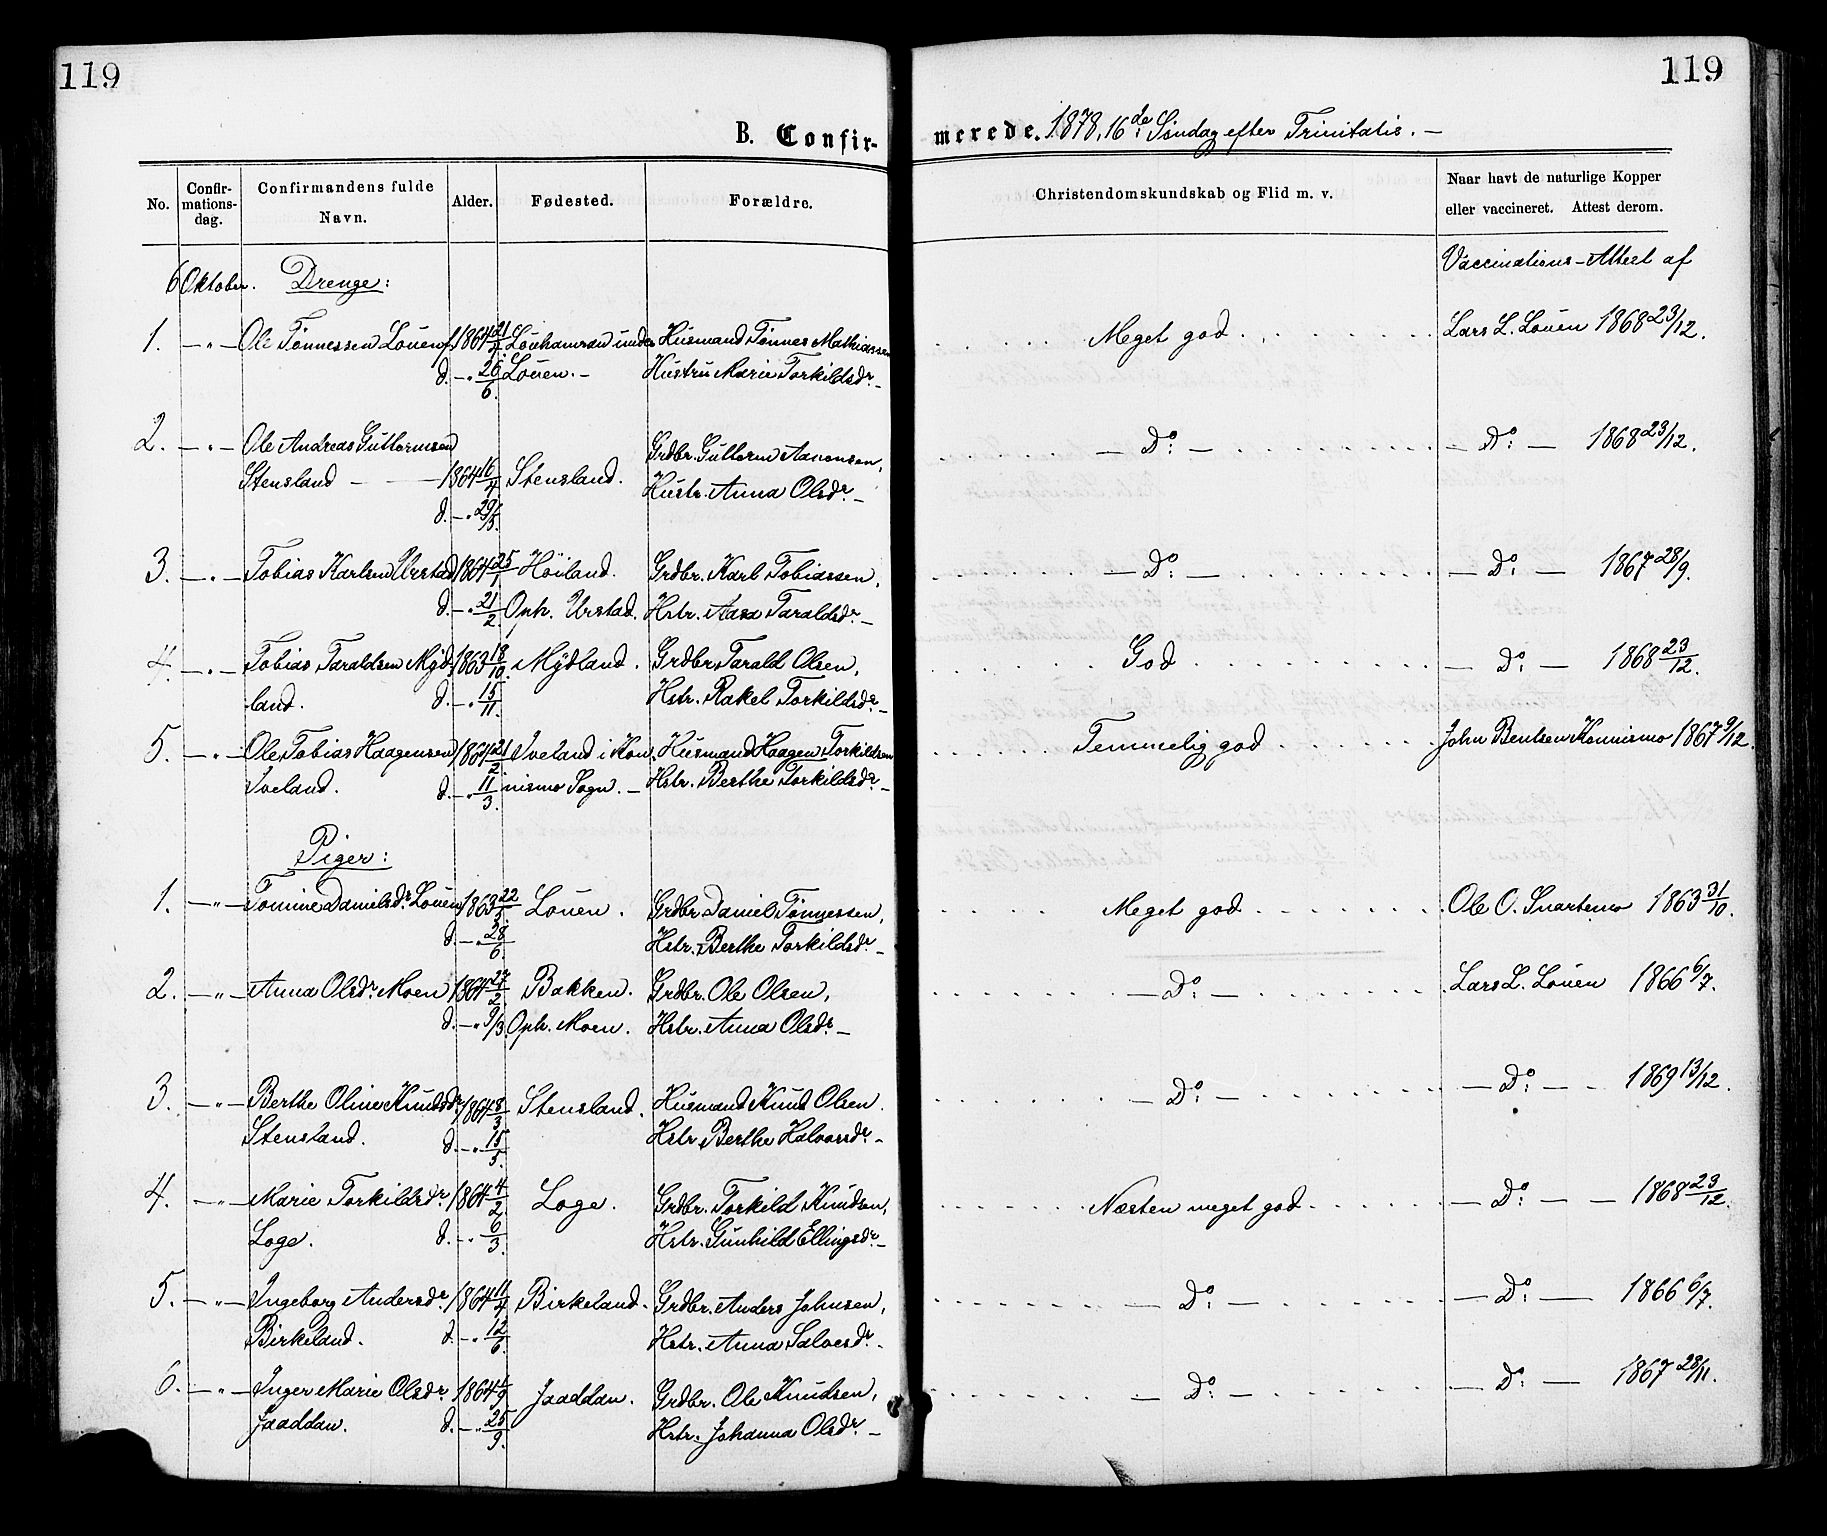 119
119
B. Confirmerede. 1878, 16de Søndag efter Trinitatis. —
No. Confirmationsdag. Confirmandens fulde Navn. Alder. Fødested. Forældre. Christendomskundskab og Flid m. v. Naar havt de naturlige Kopper eller vaccineret. Attest derom.
6 Oktober. Drenge: Vaccinations-Attest af
1. — " — Ole Tønnessen Louen f. 1864 21/4 Louhamran under Husmand Tønnes Mathiassen Meget god Lars L. Louen 1868 23/12.
d. — " 26/6. Louen. — Hustru Marie Torkildsdr. —
2. — " — Ole Andreas Guttormsen Grdbr. Guttorm Aanensen, — Do: — — Do: — 1868 23/12.
Stensland — — 1864 16/4 Stensland. Hustr. Anna Olsdr. —
d. — " 29/5.
3. — " — Tobias Karlsen Urstad 1864 25/1 Höiland. Grdbr. Karl Tobiassen, — Do: — — Do: — 1867 28/9.
d. — " 21/2. Oph. Urstad. Hstr. Aasa Taraldsdr. —
4. — " — Tobias Taraldsen Myd- 1863 18/10. Mydland. Grdbr. Tarald Olsen, God — Do: — 1868 23/12.
land. d. — " 15/11. Hstr. Rakel Torkildsdr. —
5. — " — Ole Tobias Haagensen 1864 21/2. Iveland i Kon- Husmand Haagen Torkildsen Temmelig god John Bentsen Konnismo 1867 9/12.
Iveland. d. — " 11/3. nismo Sogn. — Hstr. Berthe Torkildsdr. —
Piger:
1. — " — Tomine Danielsdr. Louen 1863 22/5 Louen. Grdbr. Daniel Tønnessen, Meget god Ole O. Snartemo 1863 31/10.
d. — " 28/6 Hstr. Berthe Torkildsdr. —
2. — " — Anna Olsdr. Moen 1864 27/2. Bakken. Grdbr. Ole Olsen, — Do: — Lars L. Louen 1866 6/7.
d. — " 9/3. Oph. Moen. Hstr. Anna Olsdr. —
3. — " — Berthe Oline Knudsdr. 1864 8/3 Stensland. Husmand Knud Olsen. — Do: — — Do: — 1869 13/12.
Stensland. d. — " 15/5. Hstr. Berthe Halvorsdr. —
4. — " — Marie Torkildsdr. 1864 4/2 Loge. Grdbr. Torkild Knudsen, Næsten meget god — Do: — — 1868 23/12.
Loge. d. — " 6/3. Hstr. Gunhild Ellingsdr. —
5. — " — Ingeborg Andersdr. 1864 11/4 Birkeland. Grdbr. Anders Johnsen, — Do: — — Do: — 1866 6/7.
Birkeland. d. — " 12/6. Hstr. Anna Salvesdr. —
6. — " — Inger Marie Olsdr. 1864 1/9 Jaaddan. Grdbr. Ole Knudsen, — Do: — — Do: — 1867 28/11.
Jaaddan. d. — " 25/9. Hstr. Johanna Olsdr. —